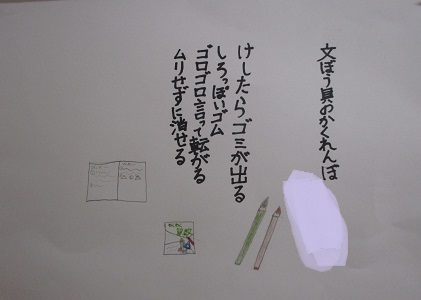 文ぼう具のかくれんぼ
けしたらゴミが出る
しろっぽいゴム
ゴロゴロ言って転がる
ムリせずに消せる